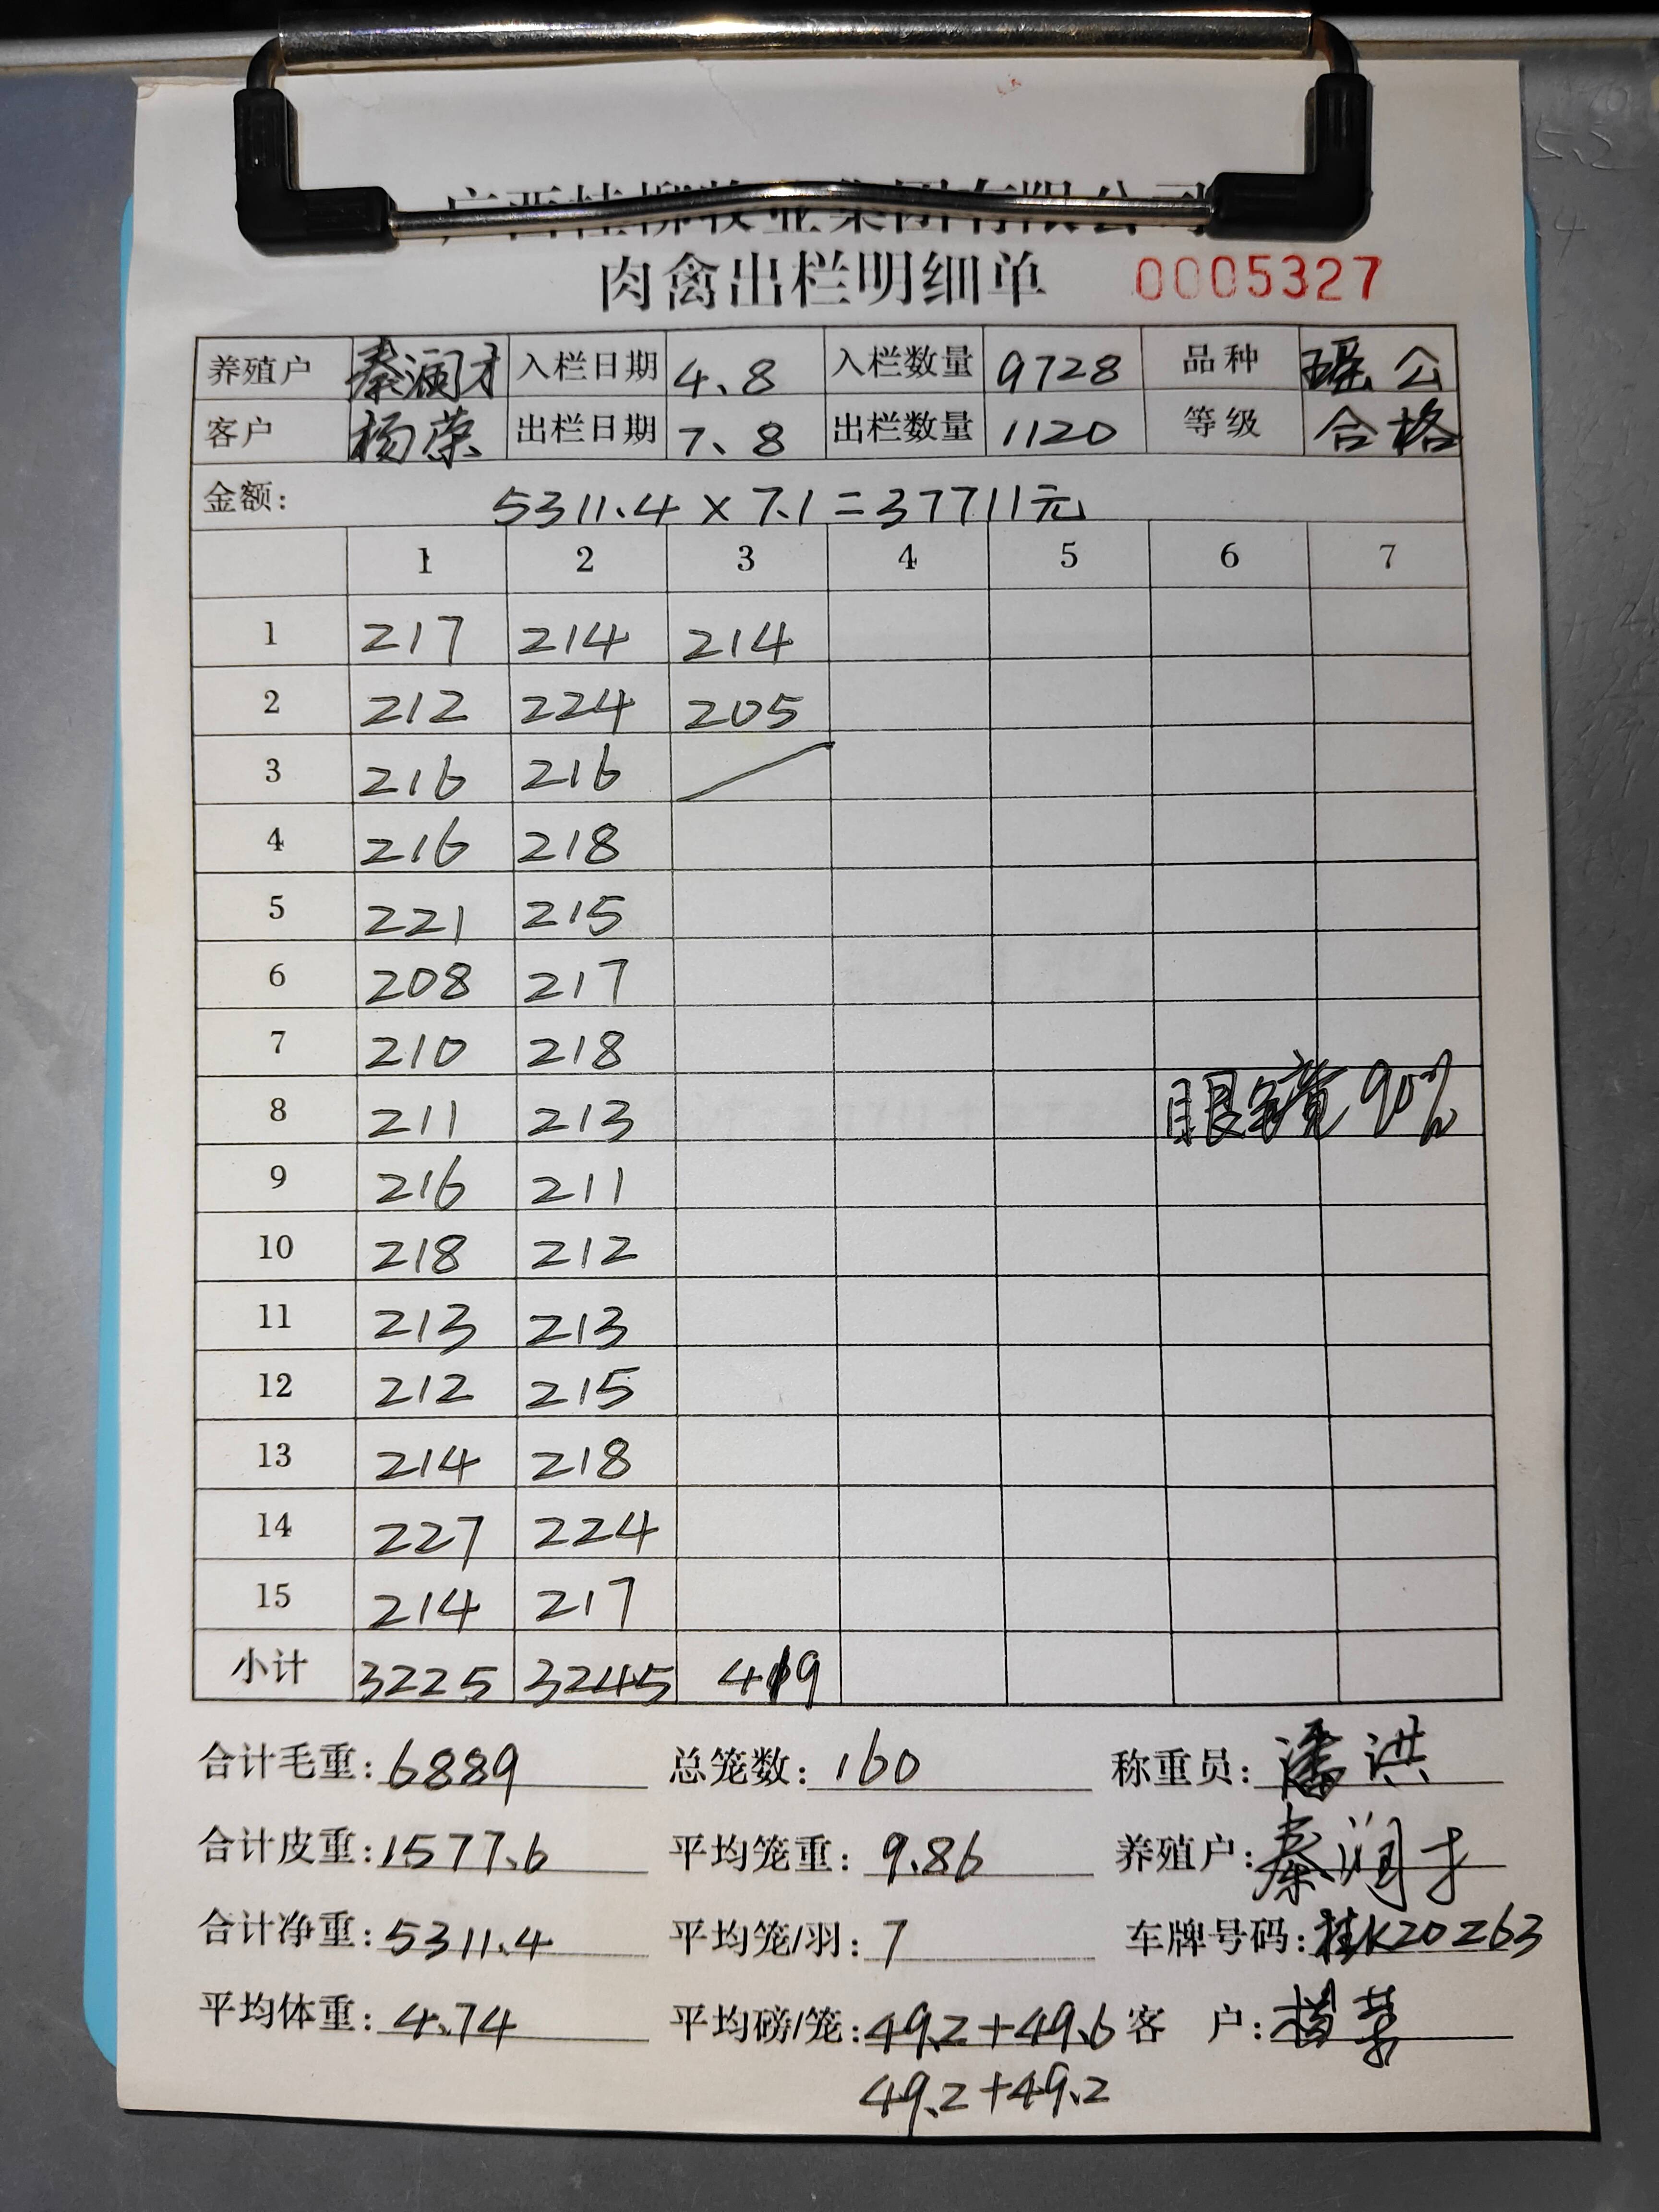 广西桂柳牧业集团有限公司
肉禽出栏明细单 0005327
养殖户 秦润才 入栏日期 4.8 入栏数量 9728 品种 瑶公
客户 杨荣 出栏日期 7.8 出栏数量 1120 等级 合格
金额: 5311.4×7.1=37711元
1 2 3 4 5 6 7
1 217 214 214
2 212 224 205
3 216 216
4 216 218
5 221 215
6 208 217
7 210 218
8 211 213 眼镜90%
9 216 211
10 218 212
11 213 213
12 212 215
13 214 218
14 227 224
15 214 217
小计 3225 3245 419
合计毛重: 6889 总笼数: 160 称重员: 潘洪
合计皮重: 1577.6 平均笼重: 9.86 养殖户: 秦润才
合计净重: 5311.4 平均笼/羽: 7 车牌号码: 桂K20263
平均体重: 4.74 平均磅/笼: 49.2+49.6 客 户: 杨荣
49.2+49.2